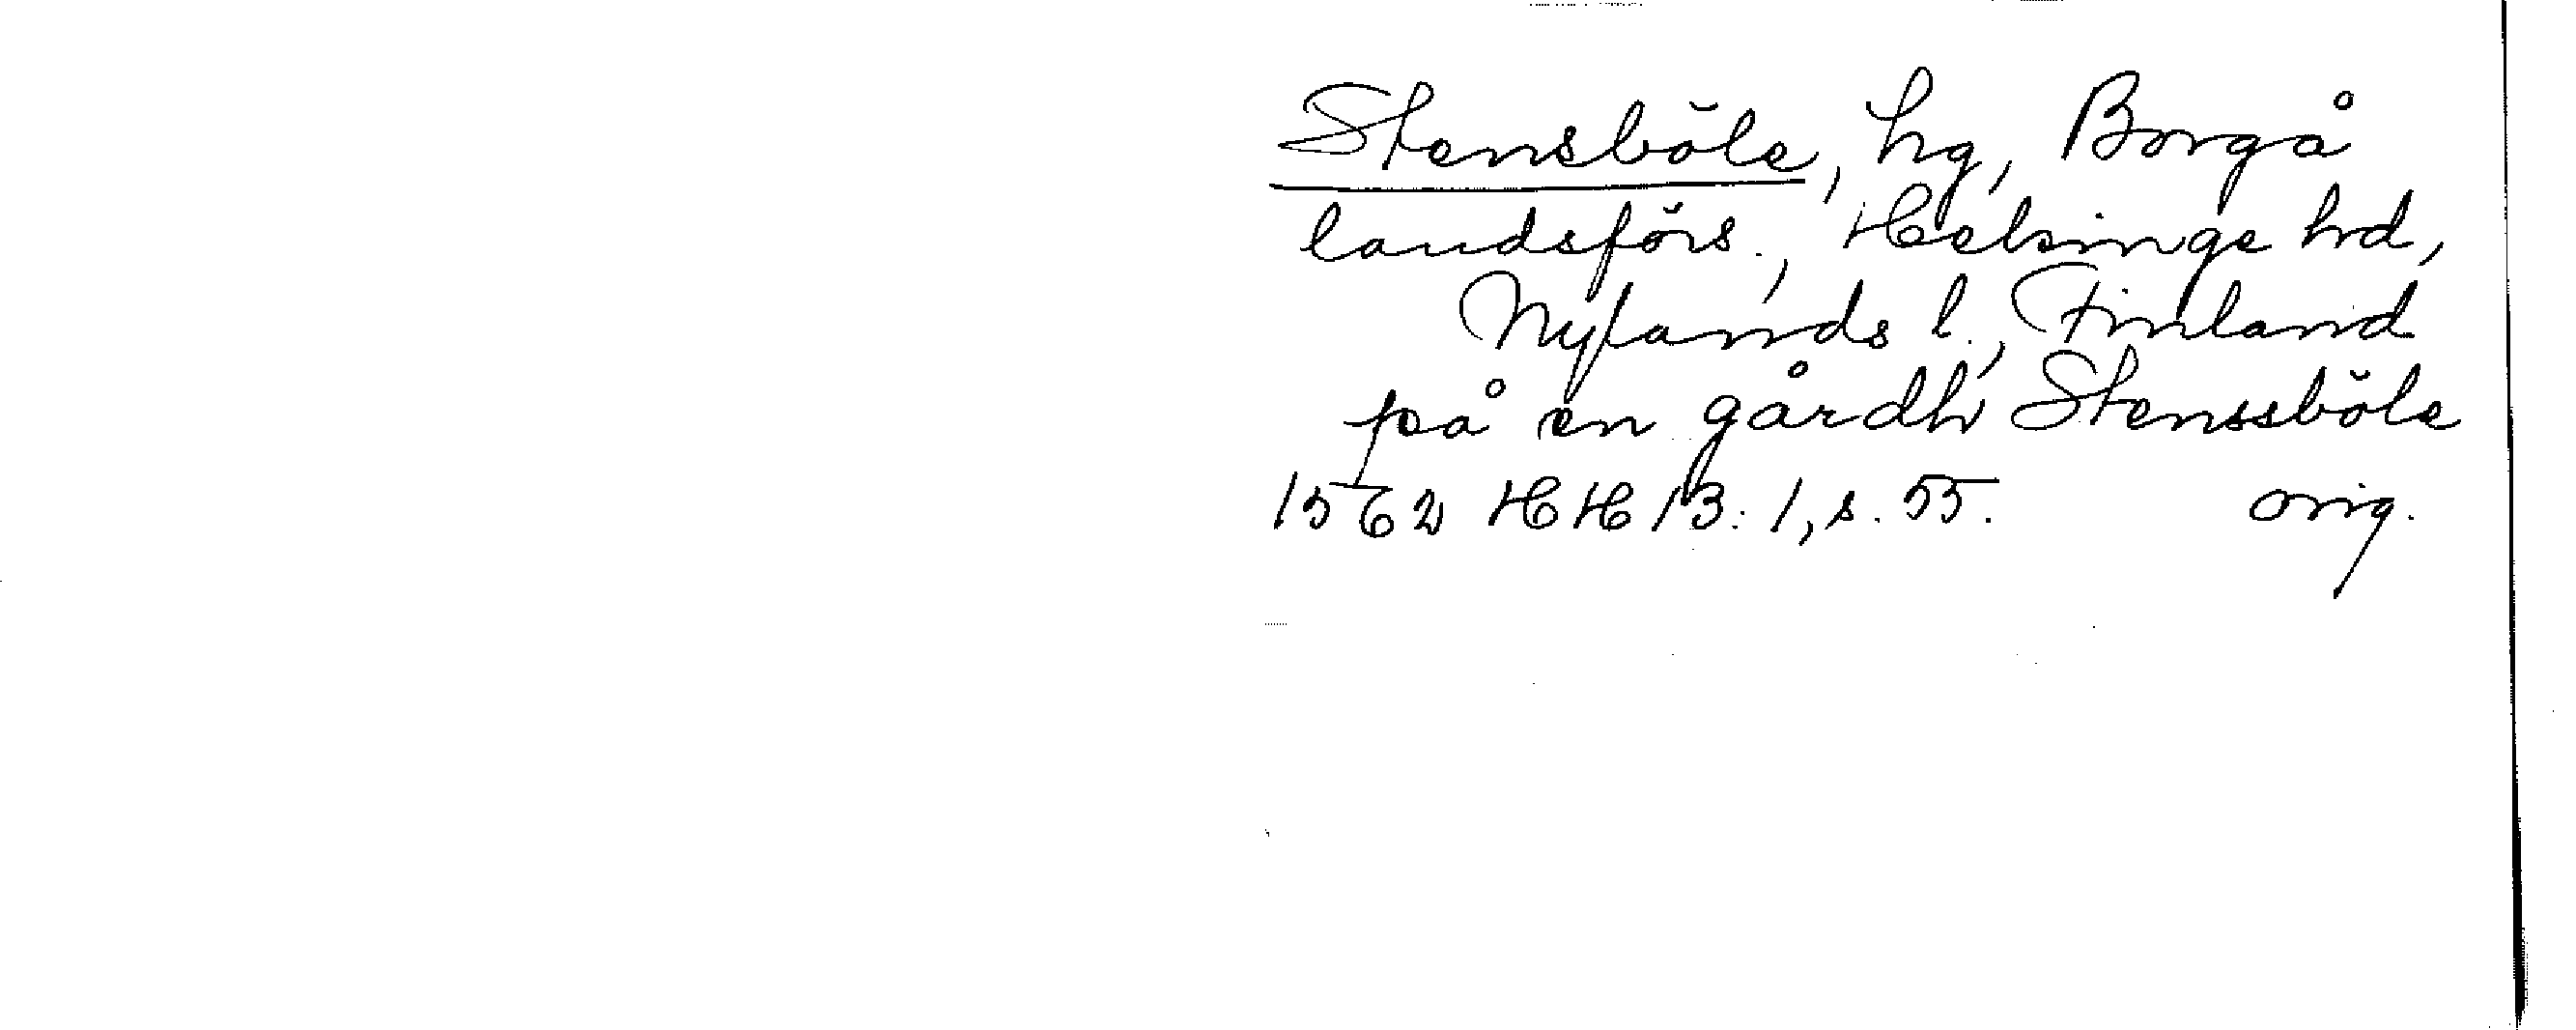 Stensböle, hg, Borgå
landsförs., Helsinge hd,
Nylands l., Finland
på en gårdh Stenssböle
1562 HH 13:1, s. 55. orig.